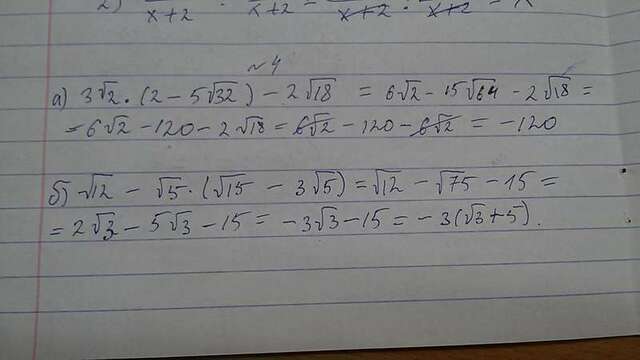 2) x+2 · x+2 = x+2 · x+2 = x
№4
а) 3√2 · (2 - 5√32) - 2√18 = 6√2 - 15√64 - 2√18 =
= 6√2 - 120 - 2√18 = 6√2 - 120 - 6√2 = -120
б) √12 - √5 · (√15 - 3√5) = √12 - √75 - 15 =
= 2√3 - 5√3 - 15 = -3√3 - 15 = -3(√3 + 5).